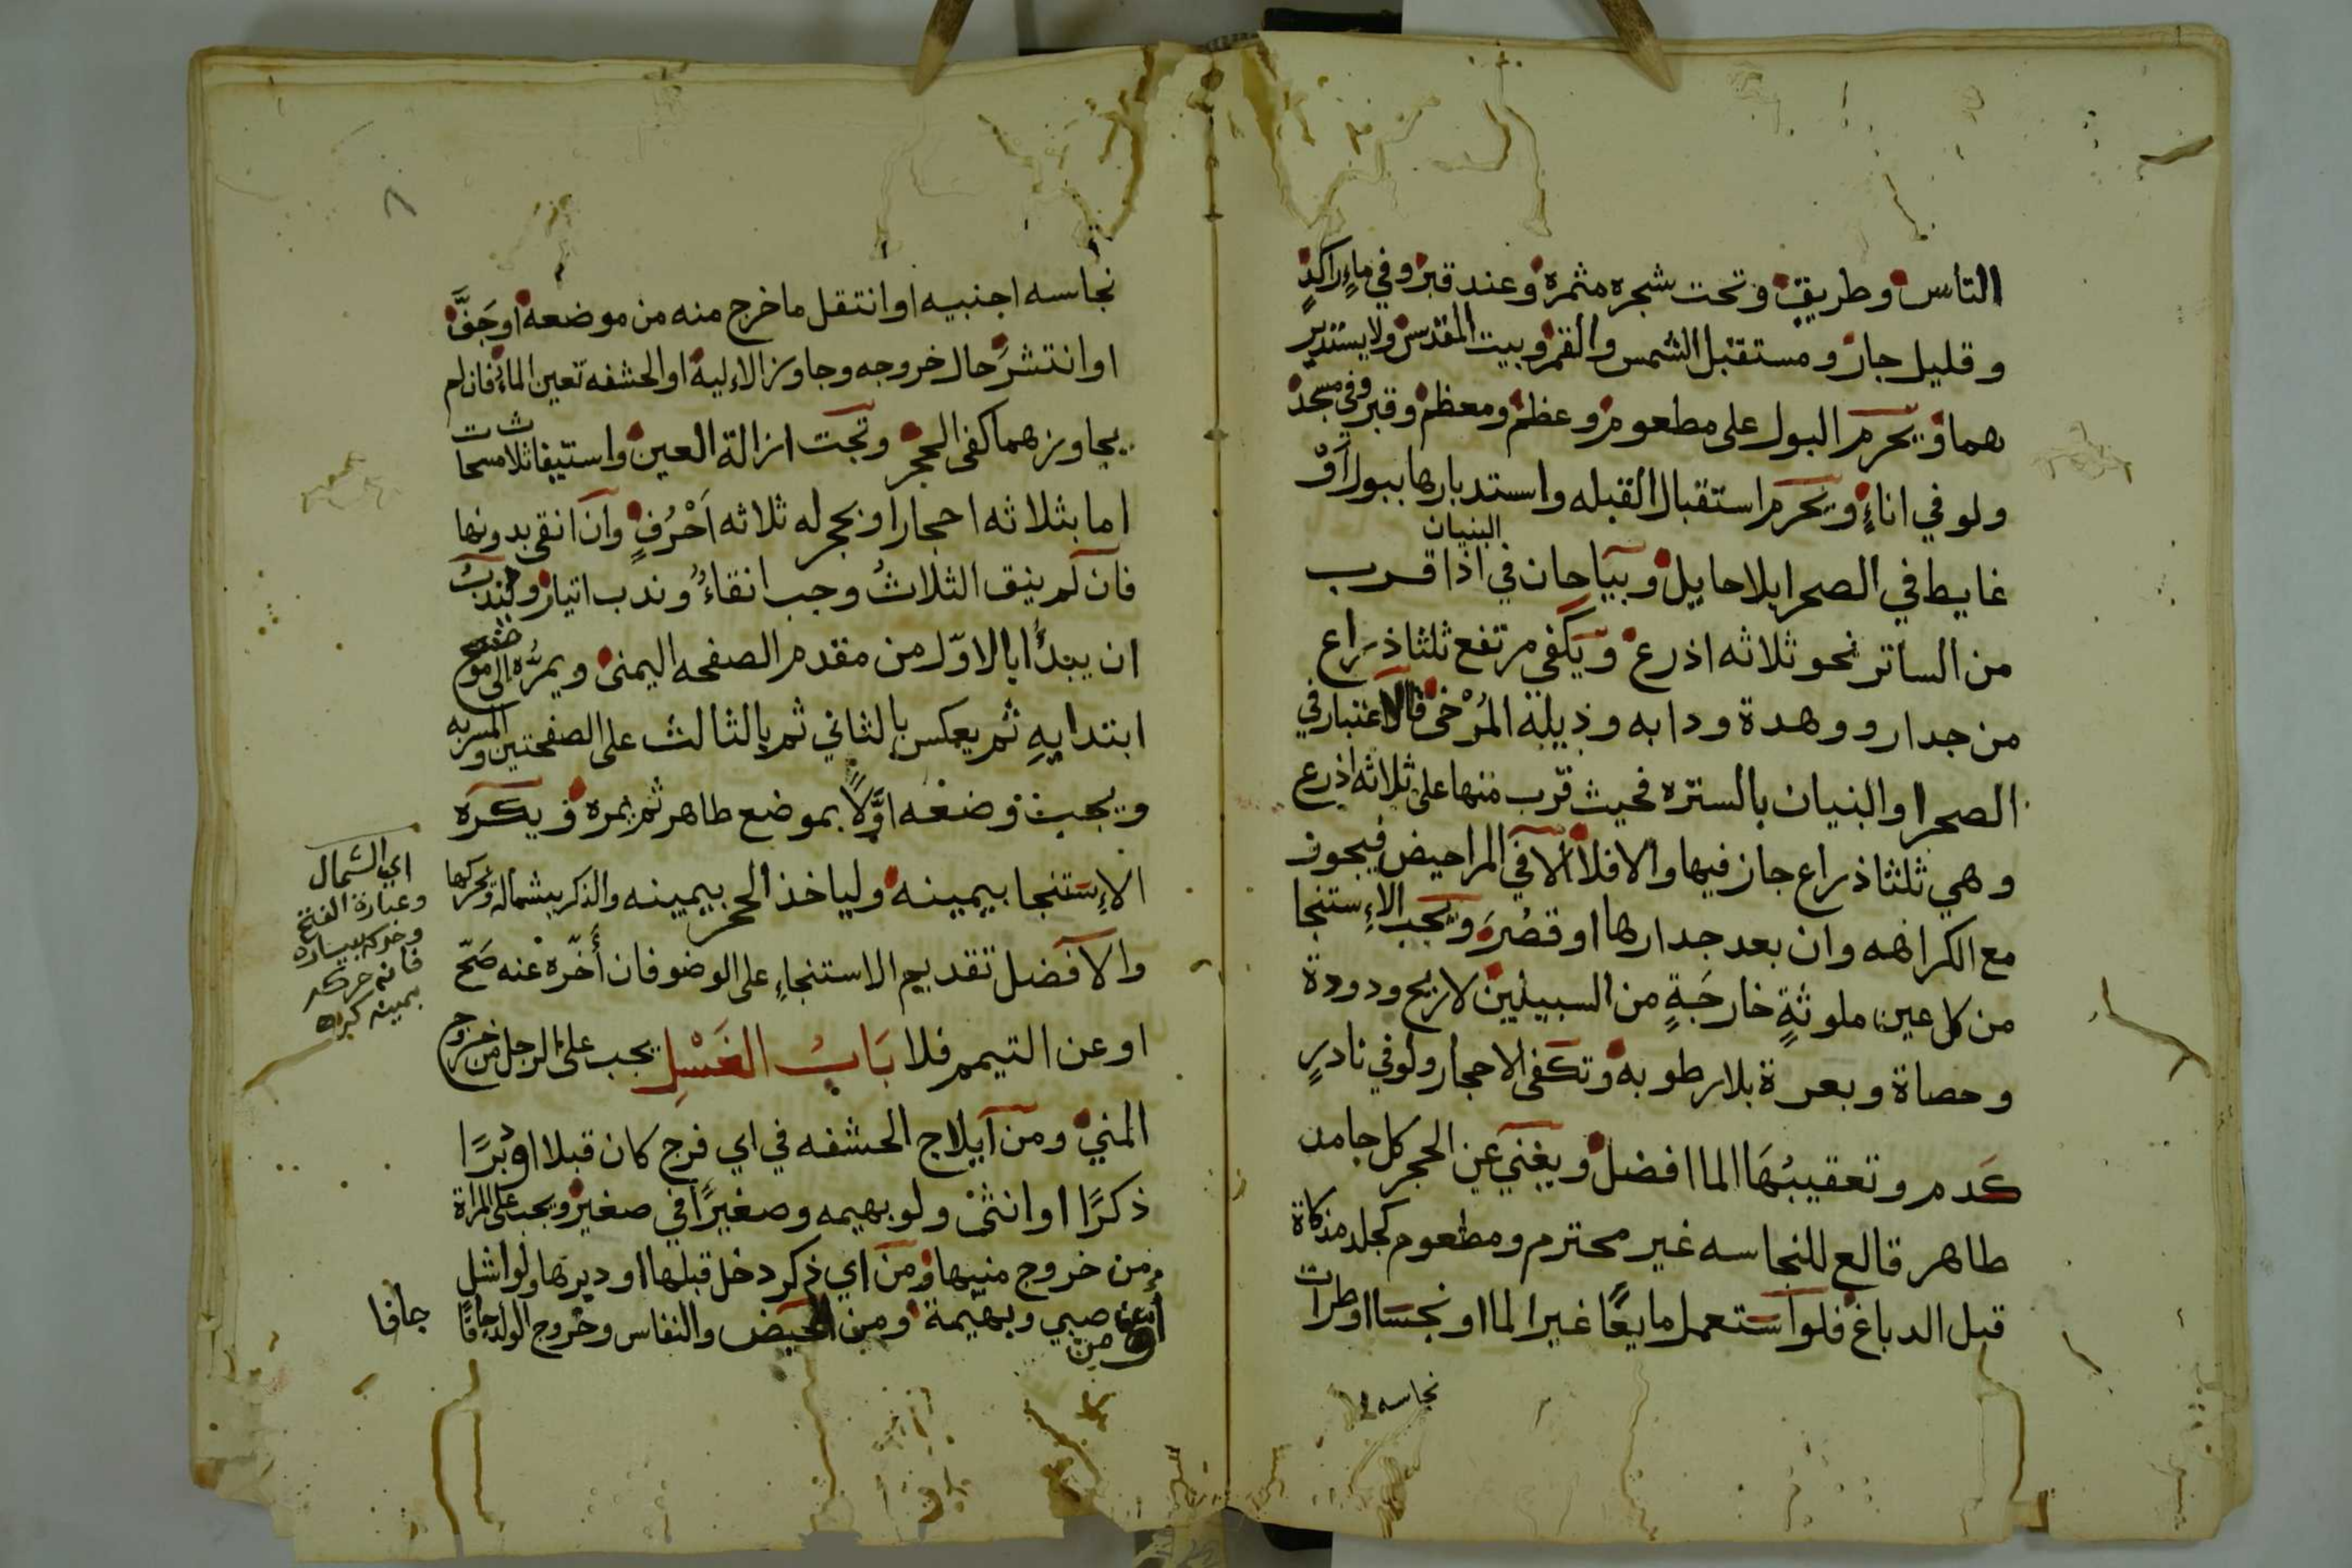 الناس وطريق وتحت شجره مثمرة وعند قبر وفي ماءٍ راكدٍ
وقليل جار ومستقبل الشمس والقمر وبيت المقدس ولا يستدبر
هما ويحرم البول على مطعوم وعظم ومعظم وقبر وفي مسجد
ولو في اناءٍ ويحرم استقبال القبله واستدبارها ببول أو
البنيان
غايط في الصحرا بلا حايل ويباحان في اذا قرب
من الساتر نحو ثلاثه اذرع ويكفي مرتفع ثلثا ذراع
من جدار ووهدة ودابه وذيله المُرْخى فالاعتبار في
الصحرا والبنيان بالستره فحيث قرب منها على ثلاثه اذرع
وهي ثلثا ذراع جاز فيها والا فلا الا في المراحيض فيجوز
مع الكراهه وان بعد جدارها او قصُرَ ويجب الاِستنجا
من كل عين ملوثةٍ خارجَةٍ من السبيلين لا ريح ودودة
وحصاة وبعرة بلا رطوبه وتكفي الاحجار ولو في نادرٍ
كَدم وتعقيبُهَا الما افضل ويغني عن الحجر كل جامد
طاهر قالع للنجاسه غير محترم ومطعوم كجلد مذكاة
قبل الدباغ فلو استعمل مايعًا غير الما او نجسا او طرات
نجاسه
نجاسه اجنبيه او انتقل ما خرج منه من موضعه او جَفَّ
او انتشرَ حال خروجه وجاوز الاليه او الحشفه تعين الماء فان لم
يجاوزهما كفى الحجر وتجب ازالة العين واستيفا ثلاث مسحات
اما بثلاثه احجار او بحجر له ثلاثه اَحْرُفٍ وان انقى بدونها
فان لم ينق الثلاثُ وجب انقاءٌ وندب ايتار ويندبُ
ان يبدأ بالاوّل من مقدم الصفحه اليمنى ويمرُّه الى موضع
ابتدايهِ ثم يعكس بالثاني ثم بالثالث على الصفحتين والمسربه
ويجب وضعه اوَّلاً بموضع طاهر ثم يمره ويكره
الاِستنجا بيمينه ولياخذ الحجر بيمينه والذكر بشماله ويحركها
والافضل تقديم الاستنجاءِ على الوضو فان أخّره عنه صَحّ
او عن التيمم فلا بَابُ الغَسْلِ يجب على الرجل من خروج
المني ومن ايلاج الحشفه في اي فرج كان قبلا او دبرًا
ذكرًا او انثى ولو بهيمه وصغيرًا في صغير ويجب على المراة
من خروج منيها ومن اي ذكر دخل قبلها او دبرها ولو اشل
او من صبي وبهيمة ومن الحيض والنفاس وخروج الولد جافًا
جافا
اي الشمال
وعبارة الفتح
وحركه بيساره
فانه حركه
بيمينه كره